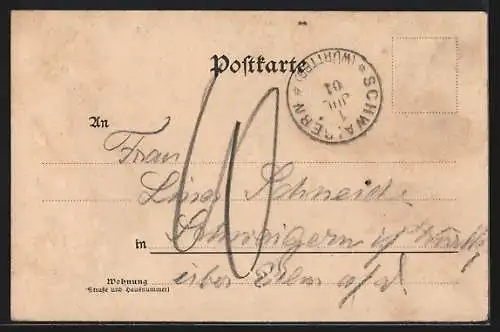 Postkarte
SCHWAIGERN (WÜRTTBG)
1 JUL 01
An
Frau
Luise Schneider
10
in Schwaigern
über
Wohnung
(Straße und Hausnummer)